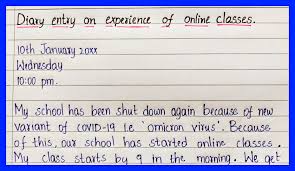 Diary entry on experience of online classes.
10th January 20xx
Wednesday
10:00 pm.
My school has been shut down again because of new
variant of COVID-19 i.e 'omicron virus'. Because
of this, our school has started online classes.
My class starts by 9 in the morning. We get